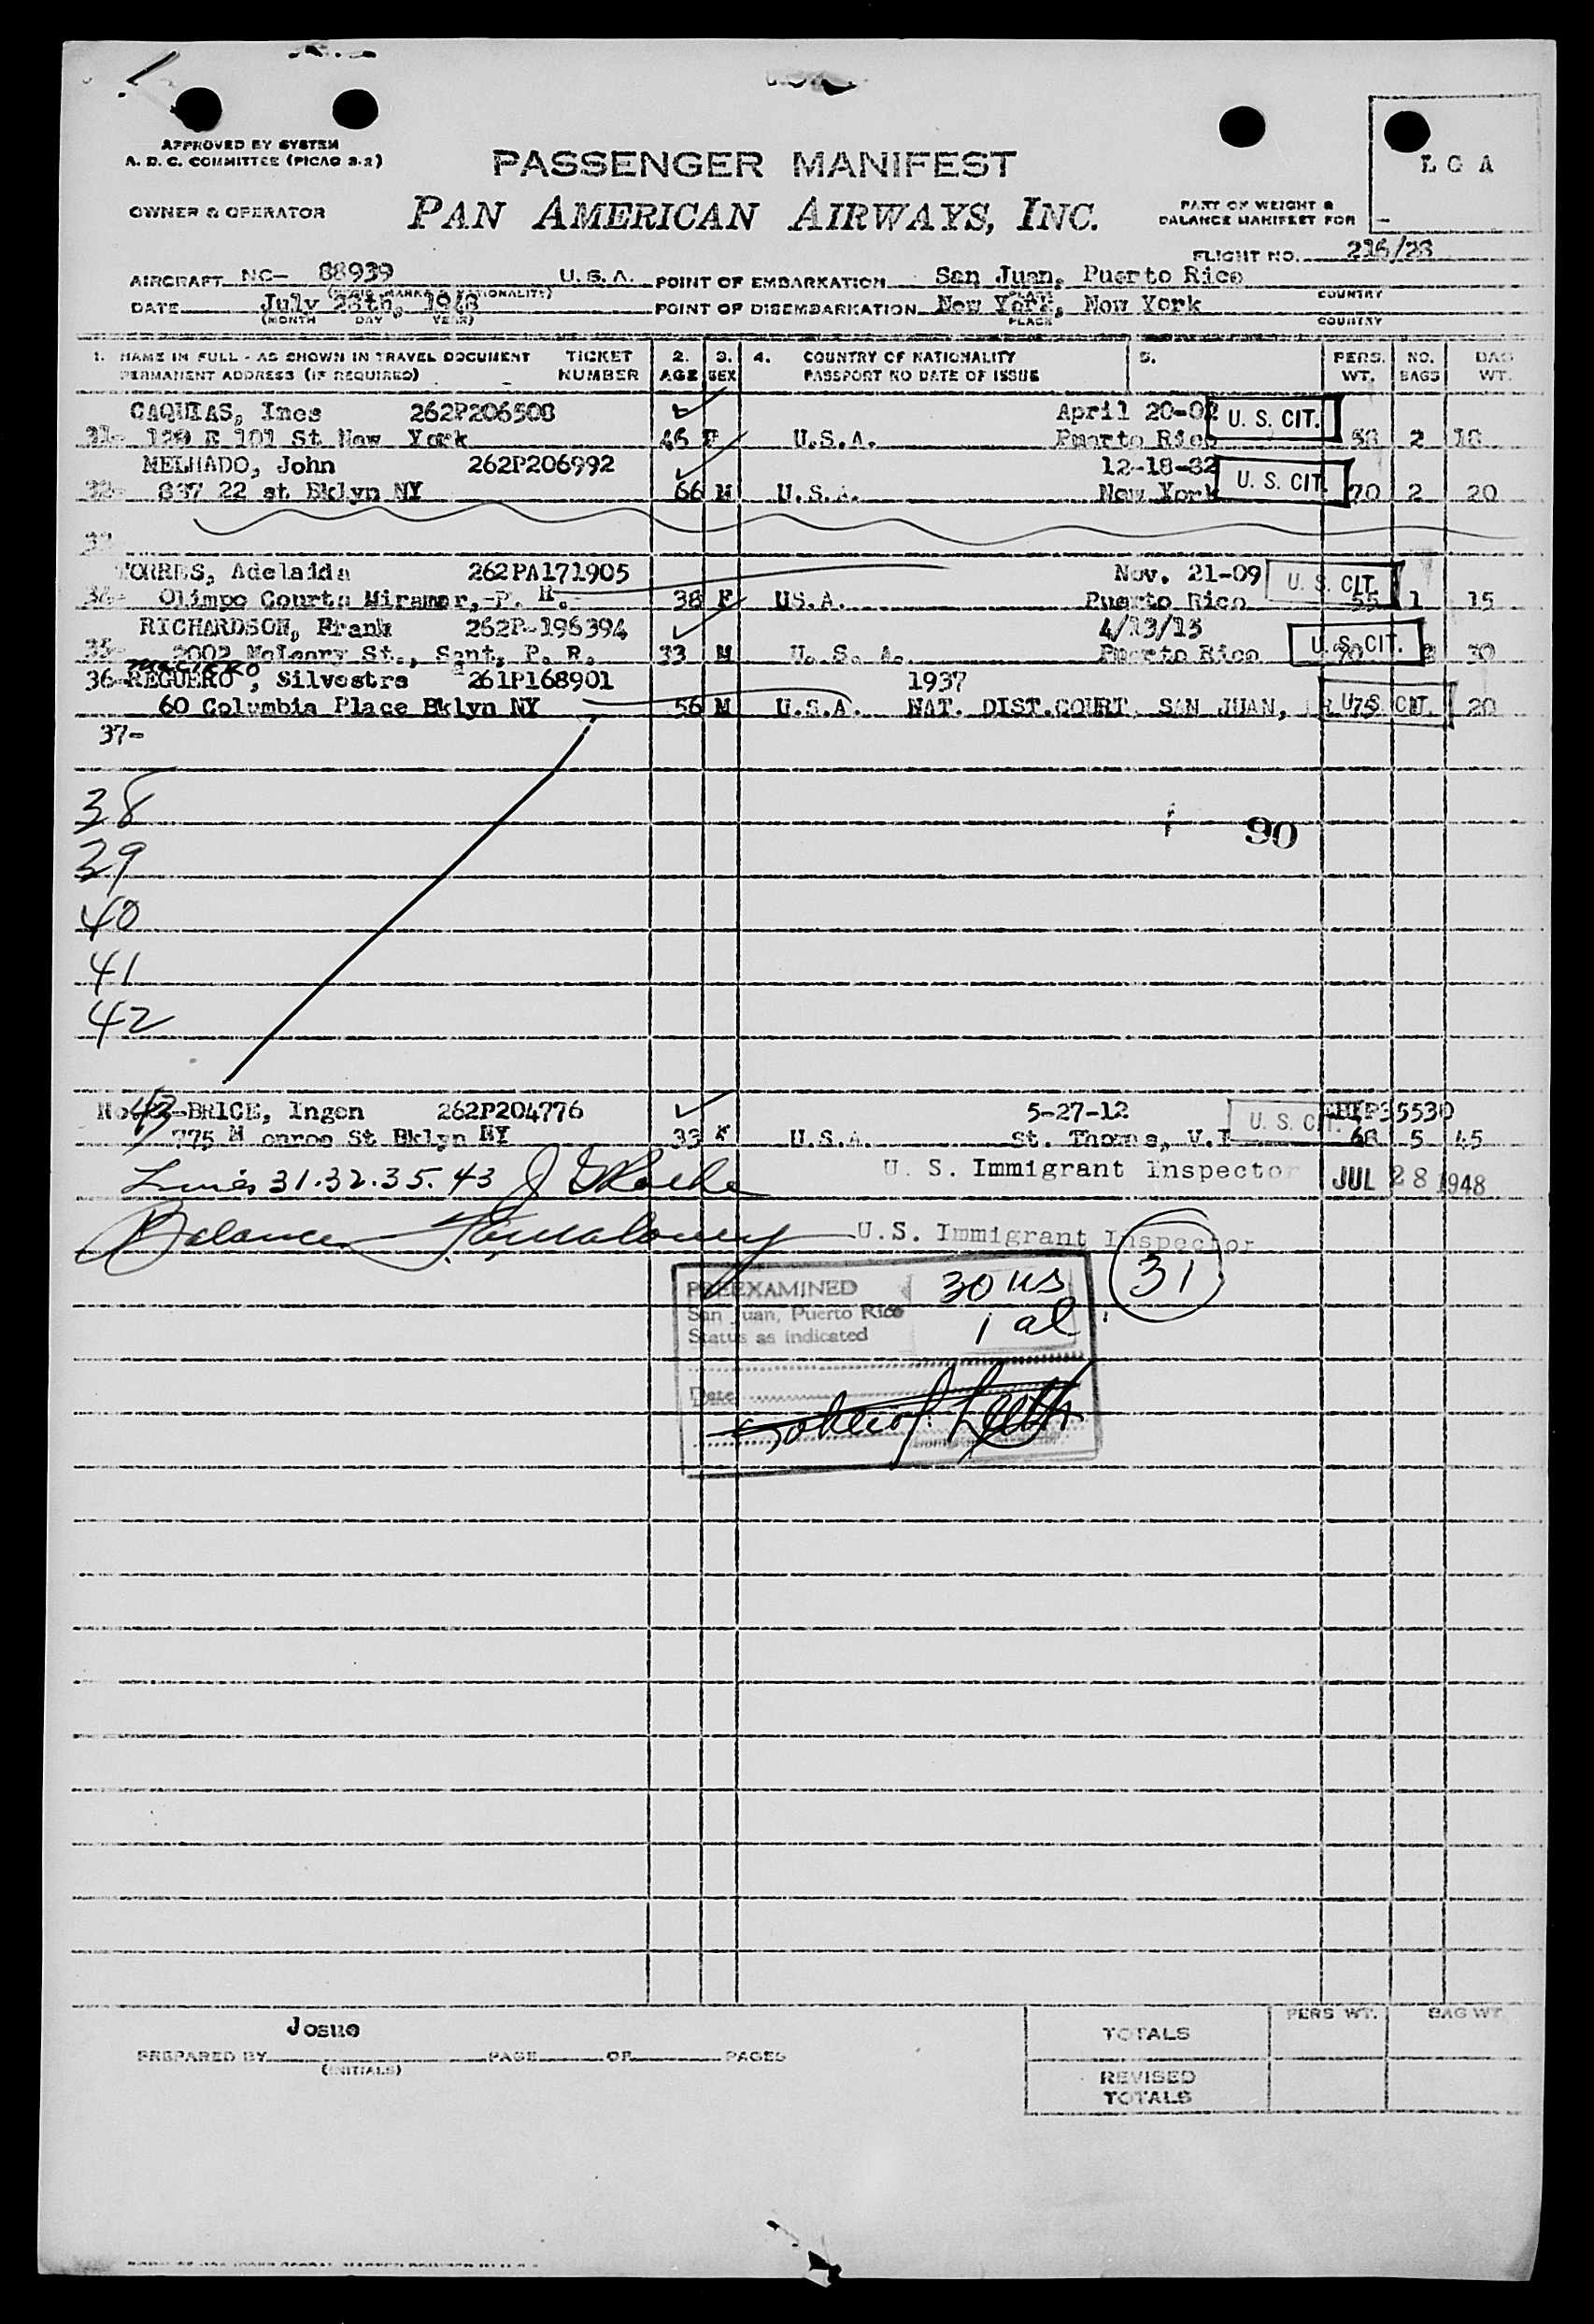 APPROVED BY SYSTEM
A. D. C. COMMITTEE (PICAO 3.2)
PASSENGER MANIFEST
L G A
OWNER & OPERATOR
PAN AMERICAN AIRWAYS, INC.
PART OF WEIGHT &
BALANCE MANIFEST FOR
FLIGHT NO. 216/28
AIRCRAFT NC- 88939 U.S.A. POINT OF EMBARKATION San Juan, Puerto Rico
COUNTRY
DATE July 28th, 1948 POINT OF DISEMBARKATION New York, New York
(MONTH DAY YEAR) PLACE COUNTRY
1. NAME IN FULL - AS SHOWN IN TRAVEL DOCUMENT TICKET 2. 3. 4. COUNTRY OF NATIONALITY 5. PERS. NO. BAG
PERMANENT ADDRESS (IF REQUIRED) NUMBER AGE SEX PASSPORT NO DATE OF ISSUE WT. BAGS WT.
CAQUIAS, Ines 262P206508 April 20-02 U. S. CIT.
31- 129 E 101 St New York 46 F U.S.A. Puerto Rico 58 2 18
MELHADO, John 262P206992 12-18-82
32- 837 22 st Bklyn NY 66 M U.S.A. New York U. S. CIT. 70 2 20
33
TORRES, Adelaida 262PA171905 Nov. 21-09 U. S. CIT.
34- Olimpo Courts Miramar, P. R. 38 F US.A. Puerto Rico 55 1 15
RICHARDSON, Frank 262P-196394 4/13/15
35- 2002 McLeary St., Sant, P. R. 33 M U. S. A. Puerto Rico U. S. CIT. 70 30
36-REGUERO, Silvestre 261P168901 1937
60 Columbia Place Bklyn NY 56 M U.S.A. NAT. DIST.COURT, SAN JUAN, PR U. S. CIT. 75 20
37-
38
39
90
40
41
42
No. 43-BRICE, Ingen 262P204776 5-27-12 35530
775 Monroe St Bklyn NY 33 F U.S.A. St. Thomas, V.I U. S. CIT. 68 5 45
Lines 31.32.35.43 U. S. Immigrant Inspector JUL 28 1948
Balance U.S. Immigrant Inspector
PREEXAMINED 30 us 31
San Juan, Puerto Rico
Status as indicated 1 al
Date
Josue
PREPARED BY PAGE OF PAGES
(INITIALS)
PERS WT. BAG WT.
TOTALS
REVISED
TOTALS